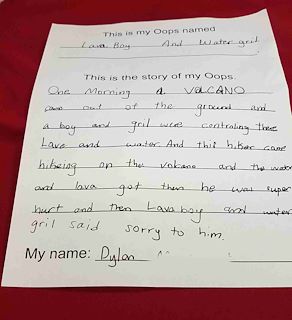 This is my Oops named
Lava Boy And Water gril
This is the story of my Oops.
One Morning a VOLCANO
came out of the ground and
a boy and gril were controling there
Lave and water. And this hiker came
hikeing on the volcano and the water
and lava got then he was super
hurt and then Lava boy and water
gril said sorry to him.
My name: Dylan